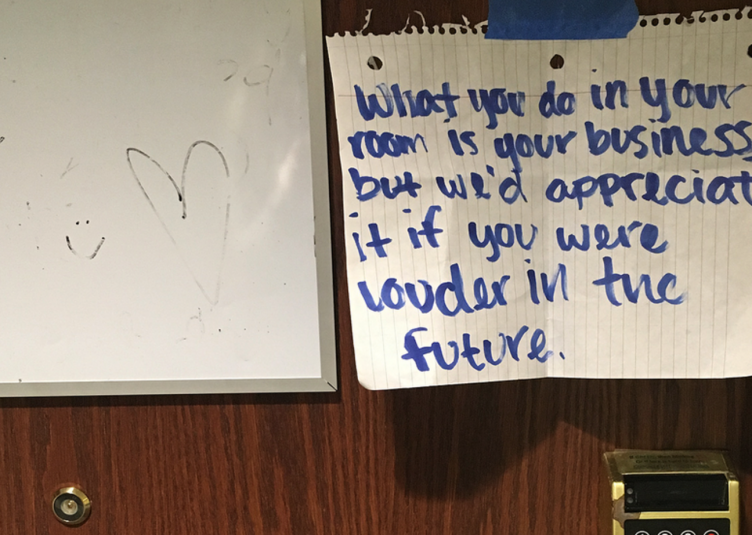 What you do in your
room is your business
but we'd appreciat
it if you were
louder in the
future.